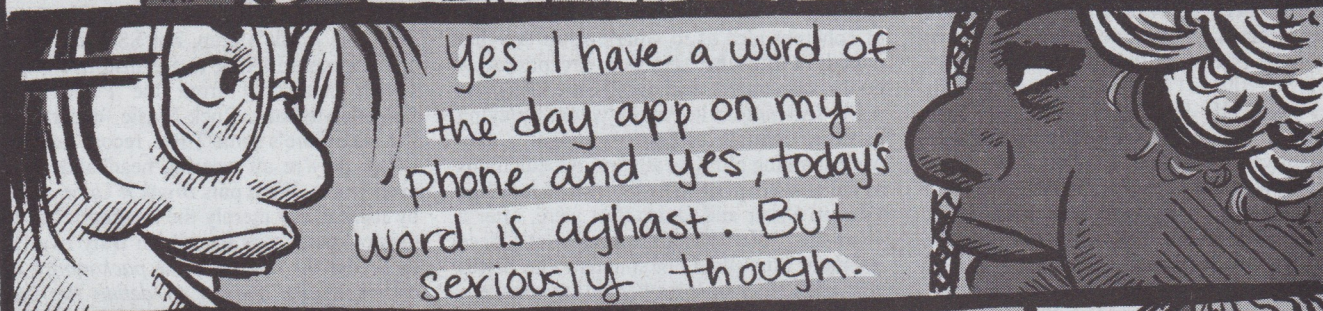 Yes, I have a word of
the day app on my
phone and yes, today's
word is aghast. But
seriously though.